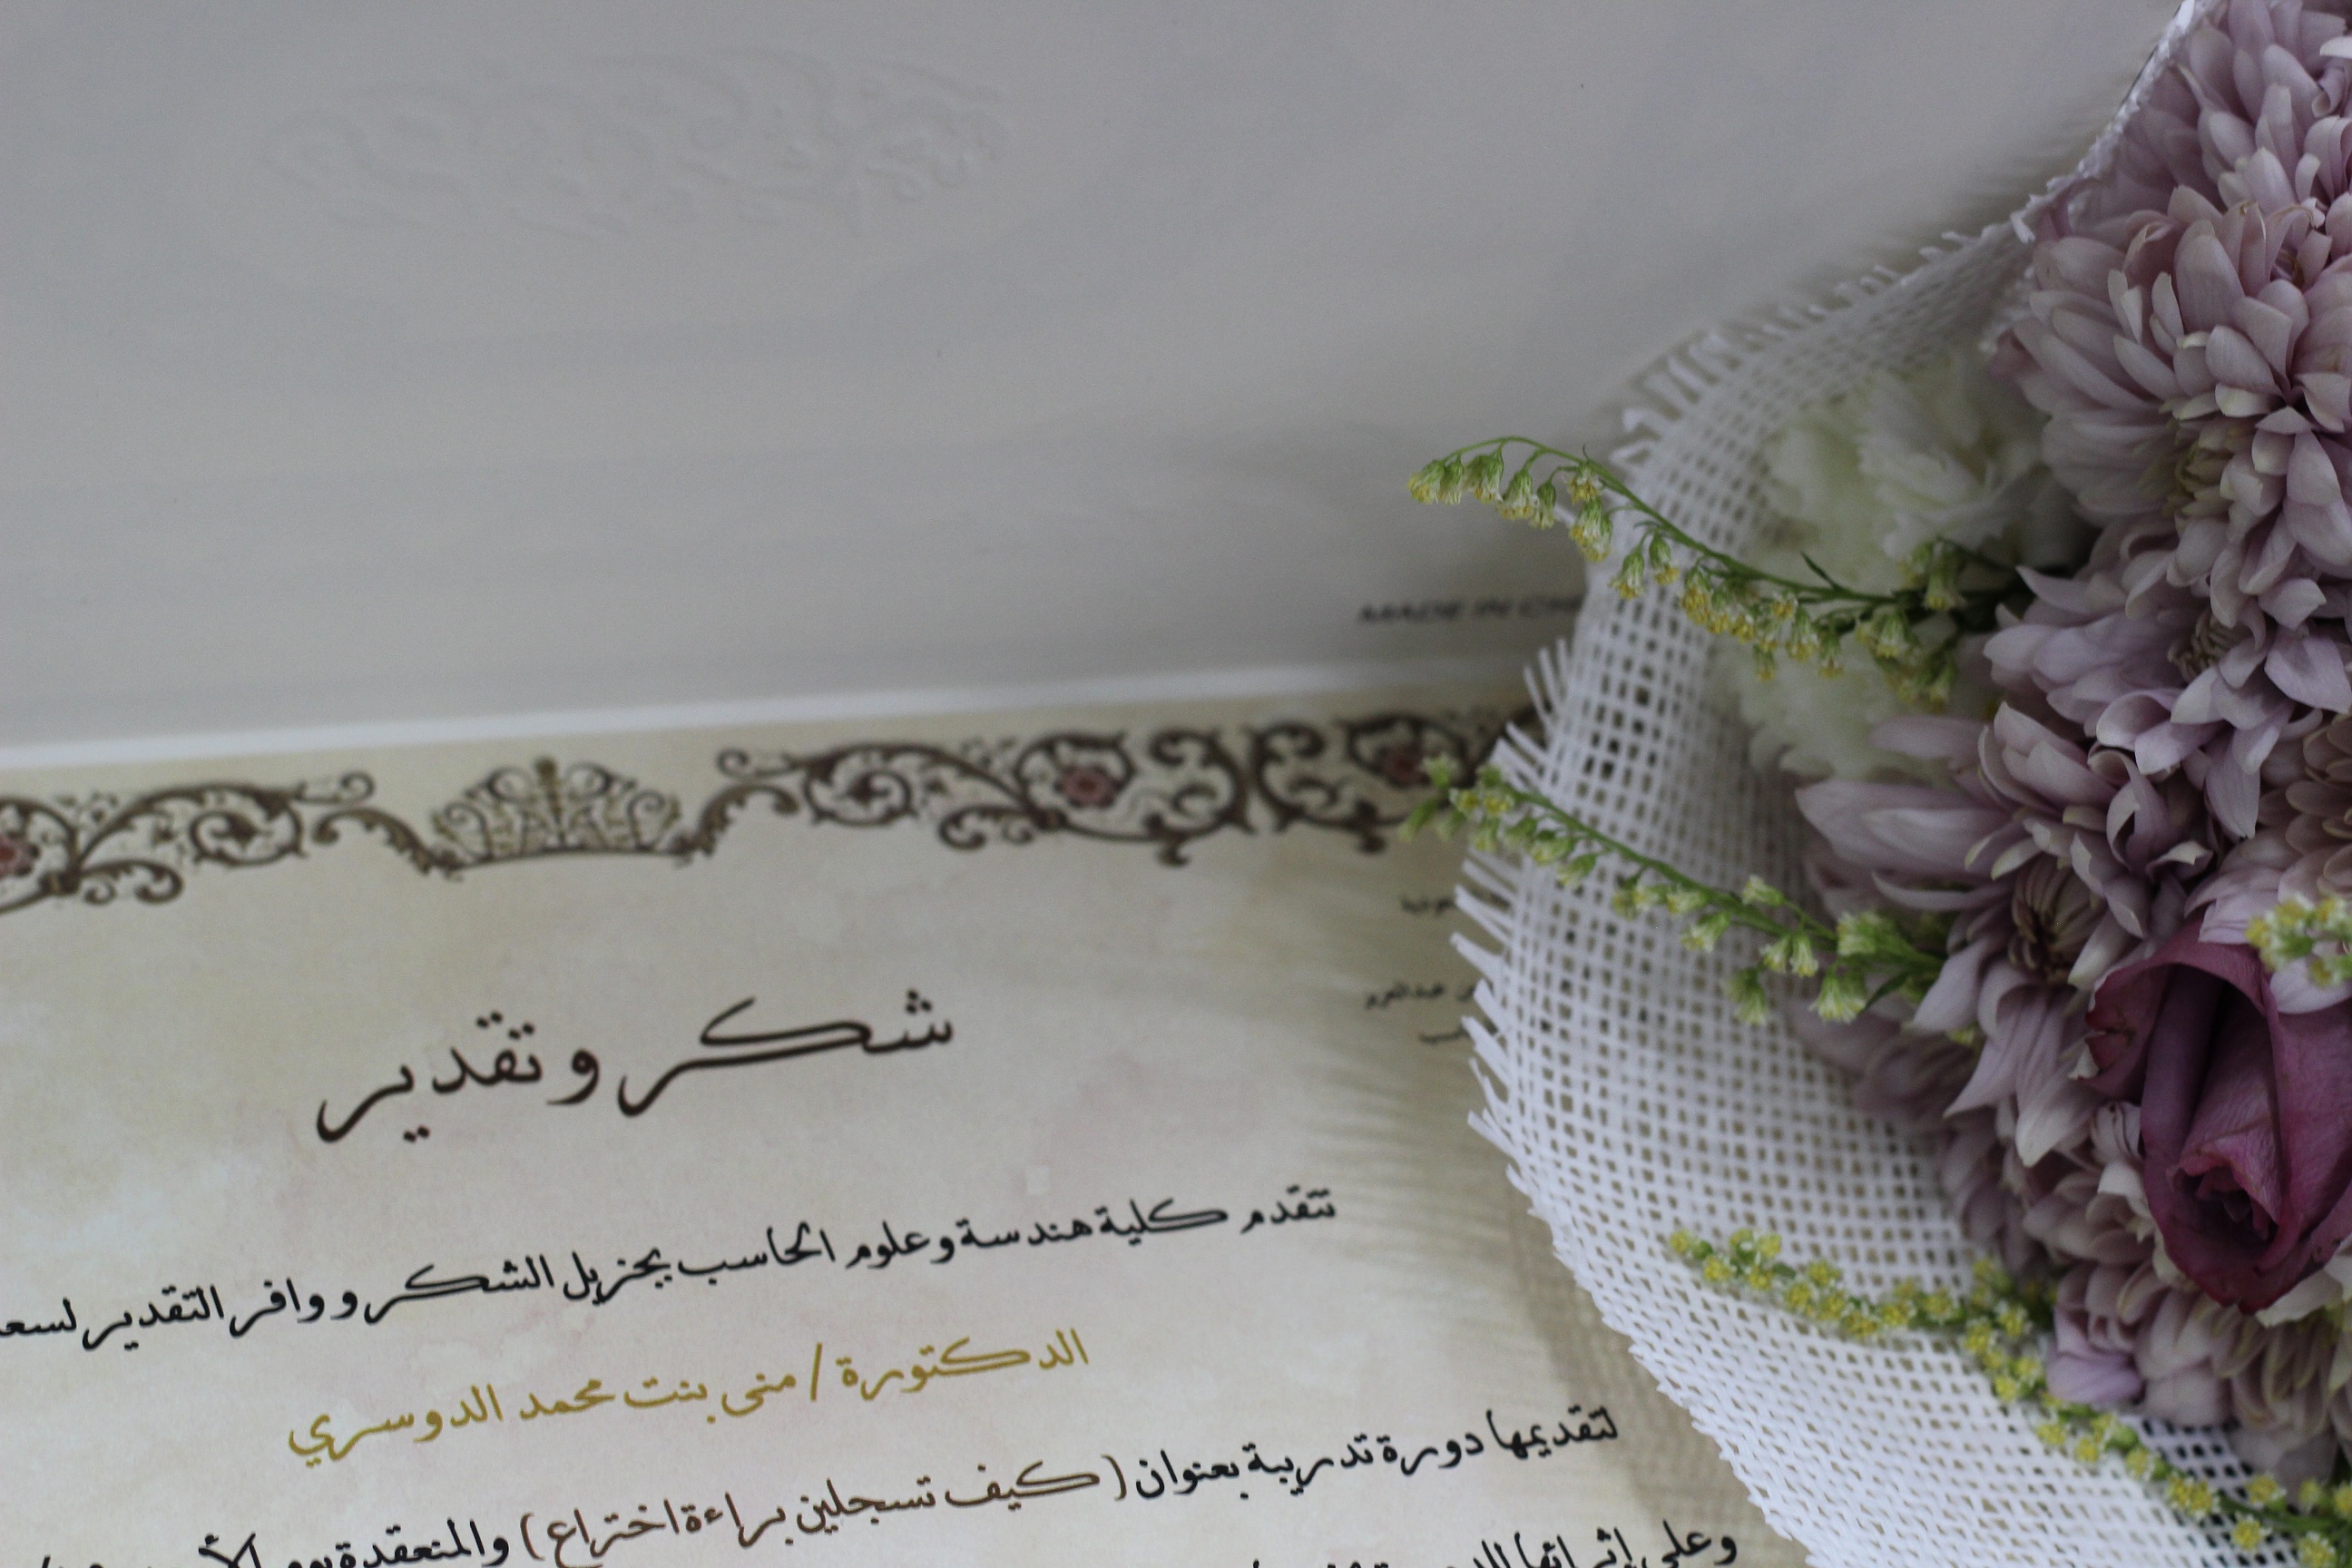 MADE IN
شكر و تقدير
تتقدم كلية هندسة وعلوم الحاسب بجزيل الشكر و وافر التقدير
الدكتورة / منى بنت محمد الدوسري
لتقديمها دورة تدريبية بعنوان ( كيف تسجلين براءة اختراع ) والمنعقدة يوم
وعلى